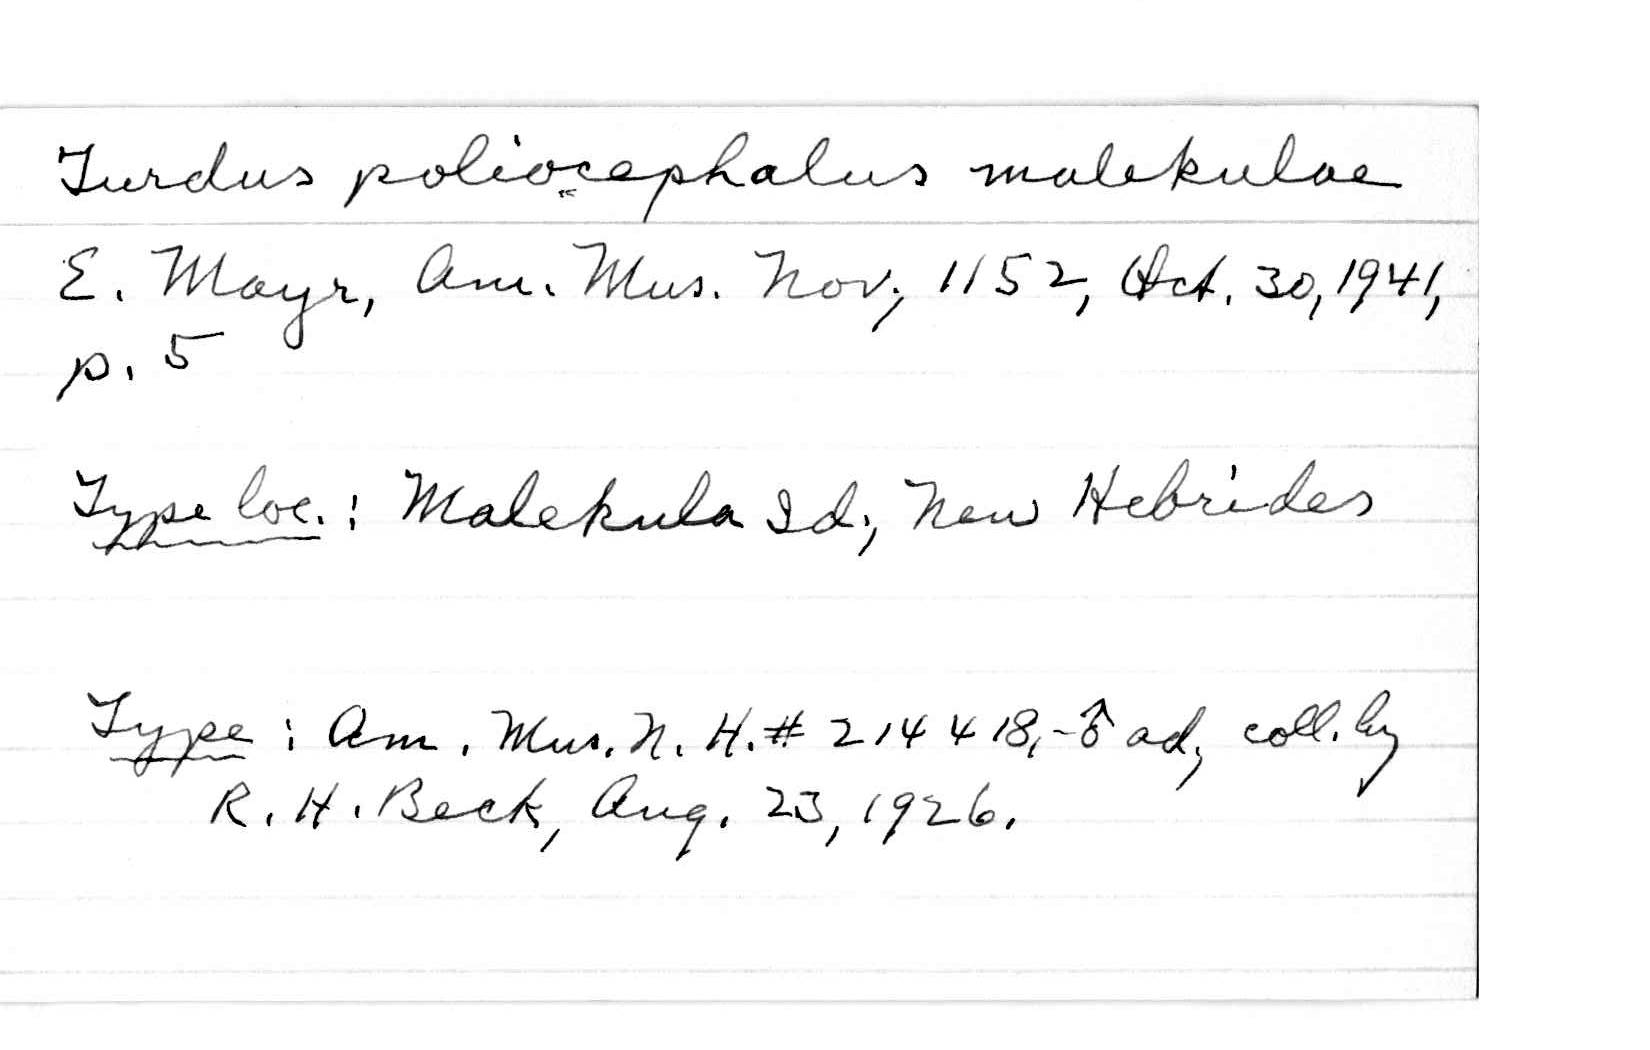 Turdus poliocephalus malekulae
E. Mayr, Am. Mus. Nov., 1152, Oct. 30, 1941,
p. 5
Type loc. : Malekula Id., New Hebrides
Type : Am. Mus. N. H. # 214418, - ♂ ad., coll. by
R. H. Beck, Aug. 23, 1926.